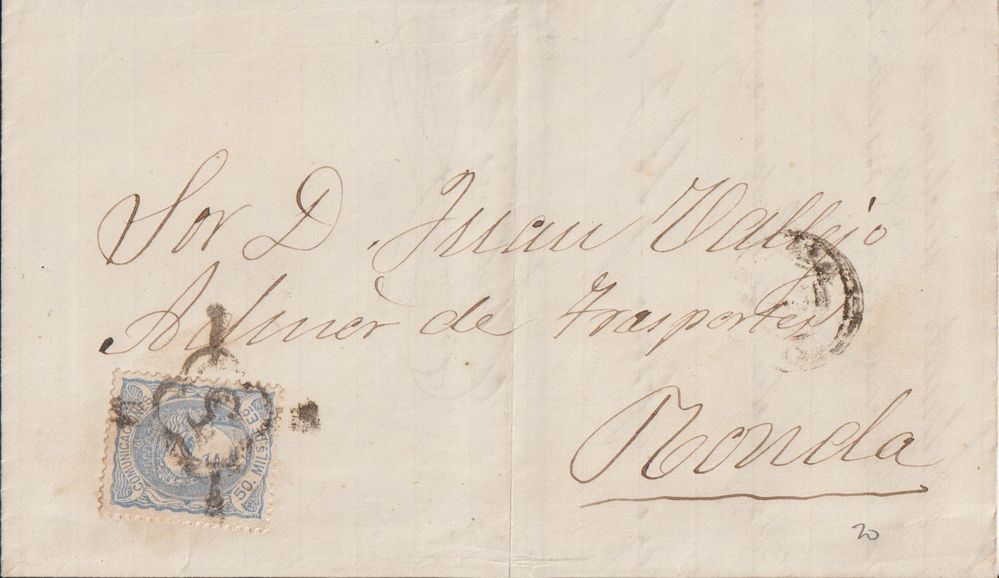 Sor D. Juan Vallejo
Admor de Trasportes
Ronda
COMUNICACIONES
50 MILS. DE E
20